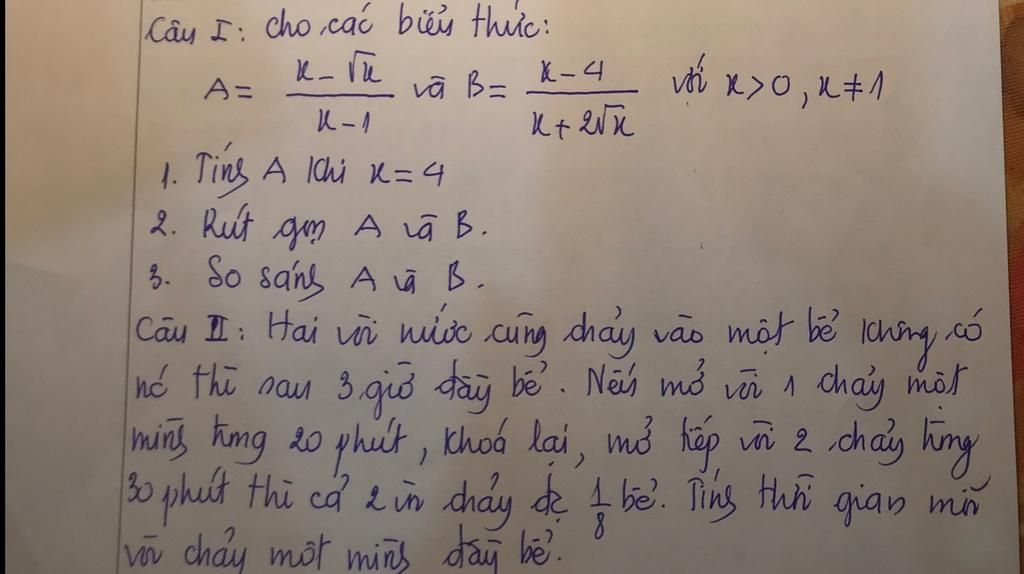 Câu I: cho các biểu thức:
A = x - √x / x - 1 và B = x - 4 / x + 2√x với x > 0, x ≠ 1
1. Tính A khi x = 4
2. Rút gọn A và B.
3. So sánh A và B.
Câu II: Hai vòi nước cùng chảy vào một bể không có
nước thì sau 3 giờ đầy bể. Nếu mở vòi 1 chảy một
mình trong 20 phút, khoá lại, mở tiếp vòi 2 chảy trong
30 phút thì cả 2 vòi chảy đc 1/8 bể. Tính thời gian mỗi
vòi chảy một mình đầy bể.